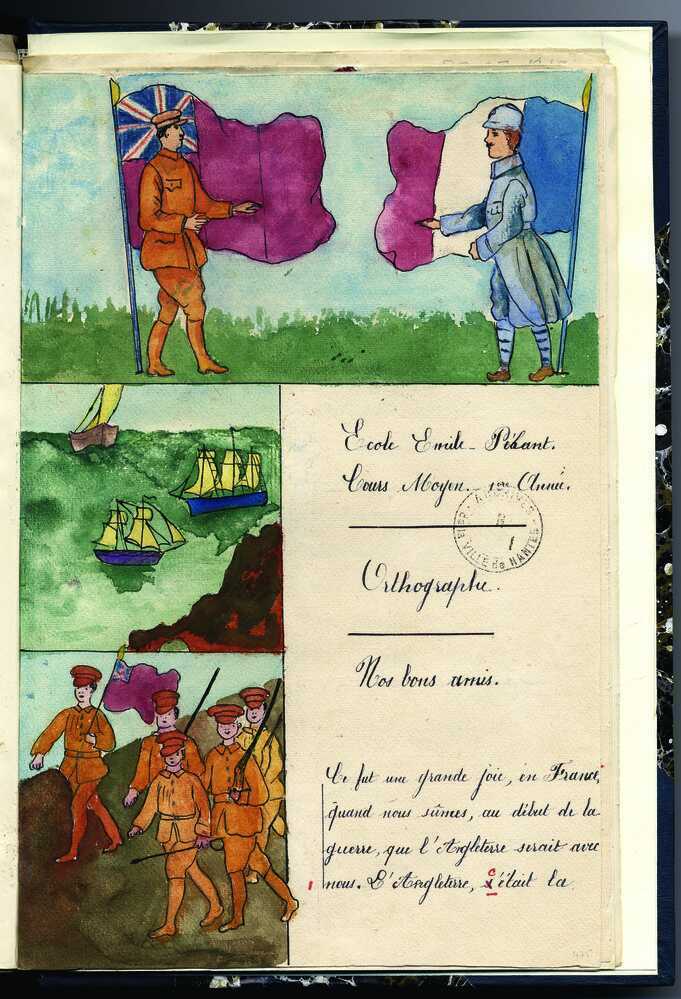 Ecole Emile-Péhant.
Cours Moyen. 1ère Année.
ARCHIVES
VILLE de NANTES
Orthographe.
Nos bons amis.
Ce fut une grande joie, en France,
quand nous sûmes, au début de la
guerre, que l'Angleterre serait avec
nous. L'Angleterre, c'était la